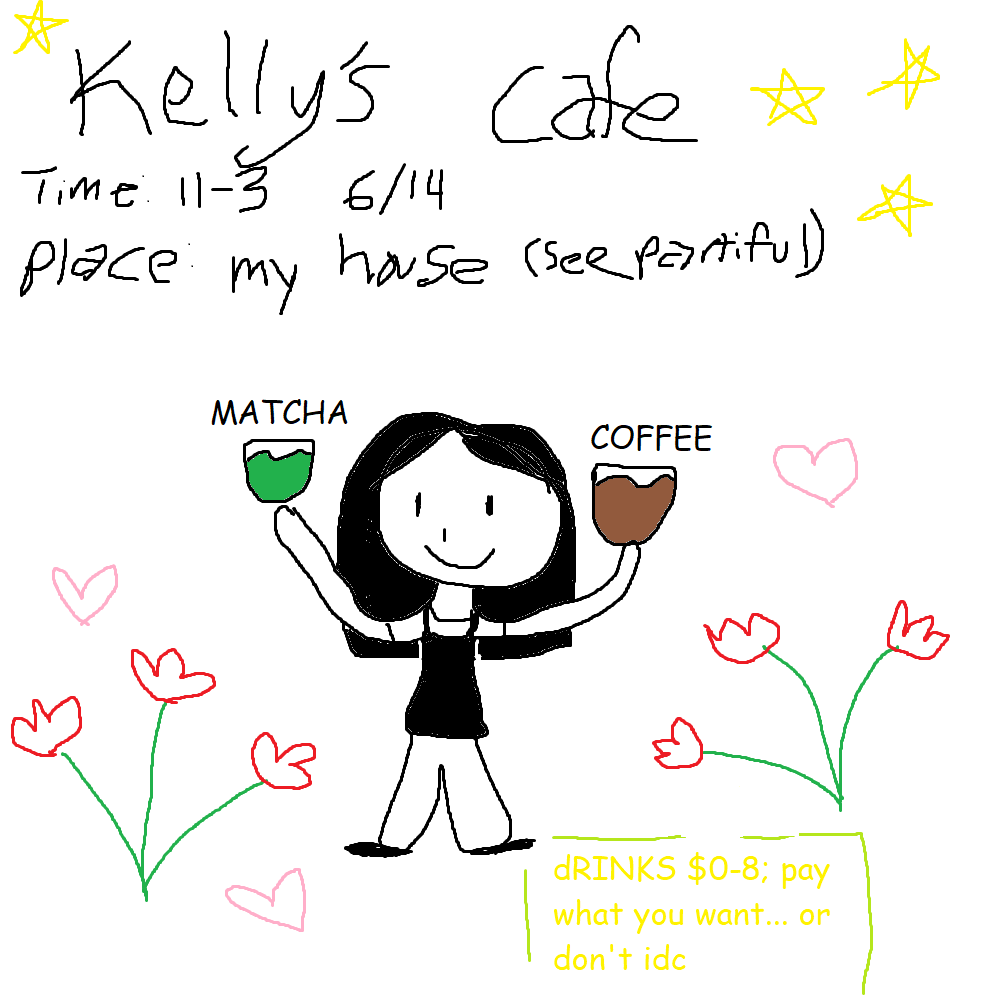 Kelly's Cafe
Time: 11-3 6/14
place: my house (see partiful)
MATCHA
COFFEE
dRINKS $0-8; pay
what you want... or
don't idc